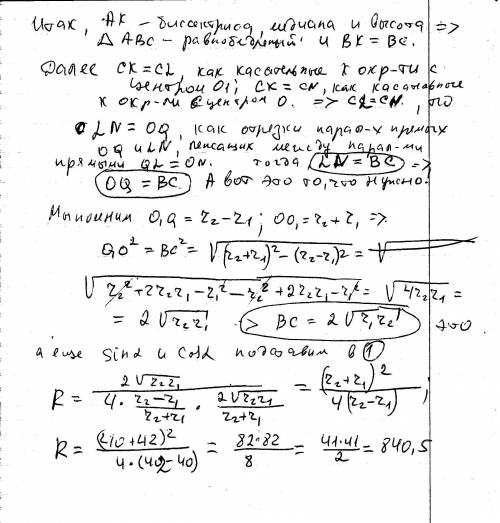 Итак, AK - биссектриса, медиана и высота =>
△ ABC - равнобедренный и BK = BC.
Далее CK = CL, как касательные к окр-ти с
центром O₁; CK = CN, как касательные
к окр-ти с центром O. => CL = CN, но
LN = OQ, как отрезки парал-х прямых
OQ и LN, лежащих между парал-ми
прямыми QL = ON. тогда LN = BC =>
OQ = BC. А вот это то, что нужно!
Мы помним O₁Q = r₂ - r₁; OO₁ = r₂ + r₁ =>
QO² = BC² = √(r₂+r₁)² - (r₂-r₁)² = √
√r₂² + 2r₂r₁ - r₁² - r₂² + 2r₂r₁ - r₁² = √4r₂r₁ =
= 2√r₂r₁ > BC = 2√r₁r₂ это
а еще Sinα и Cosα подставим в ①
R = 2√r₂r₁ / (4 · (r₂-r₁)/(r₂+r₁) · 2√r₂r₁/(r₂+r₁)) = (r₂+r₁)² / 4(r₂-r₁);
R = (40+42)² / 4·(42-40) = 82·82 / 8 = 41·41 / 2 = 840,5